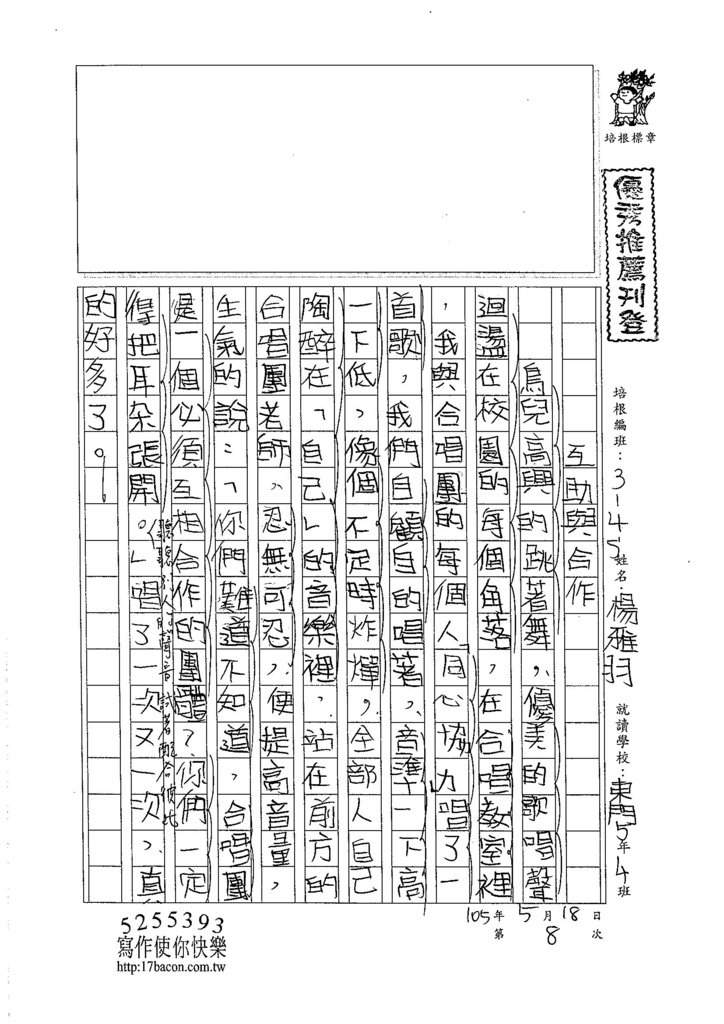 培根標章
優秀推薦刊登
培根編班：3-145 姓名：楊雅羽 就讀學校：東門5年4班
105年5月18日
第8次
互助與合作
鳥兒高興的跳著舞，優美的歌唱聲
迴盪在校園的每個角落，在合唱教室裡
，我與合唱團的每個人同心協力唱了一
首歌，我們自顧自的唱著，音準一下高
一下低，像個不定時炸彈，全部人自己
陶醉在「自己」的音樂裡，站在前方的
合唱團老師，忍無可忍，便提高音量，
生氣的說：「你們難道不知道，合唱團
是一個必須互相合作的團體？你們一定
得把耳朵張開。」唱了一次又一次，真
聽聽別人的聲音試著配合彼此
的好多了。
5255393
寫作使你快樂
http:17bacon.com.tw